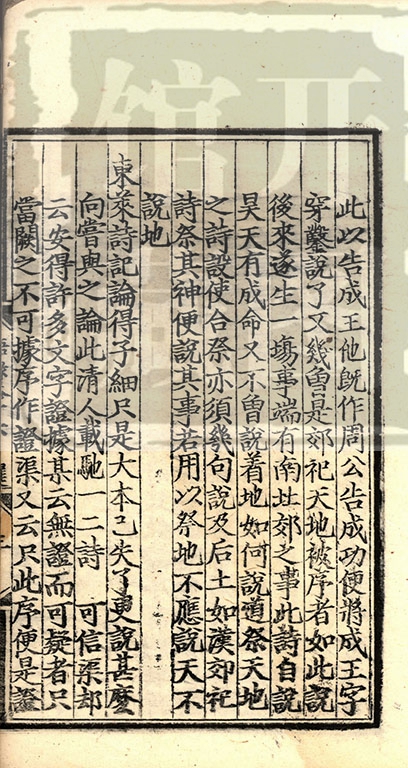 此以告成王他旣作周公告成功便將成王字
穿鑿說了又幾曽是郊祀天地被序者如此說
後來遂生一塲事端有南北郊之事此詩自說
昊天有成命又不曽說着地如何說道祭天地
之詩設使合祭亦須幾句說及后土如漢郊祀
詩祭其神便說其事若用以祭地不應說天不
說地
東萊詩記論得子細只是大本已失了更說甚麼
向嘗與之論此清人載馳一二詩 可信渠却
云安得許多文字證據某云無證而可疑者只
當闕之不可據序作證渠又云只此序便是證